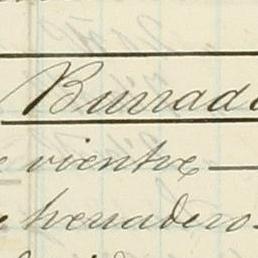 Burrada
e vientre
e herradero